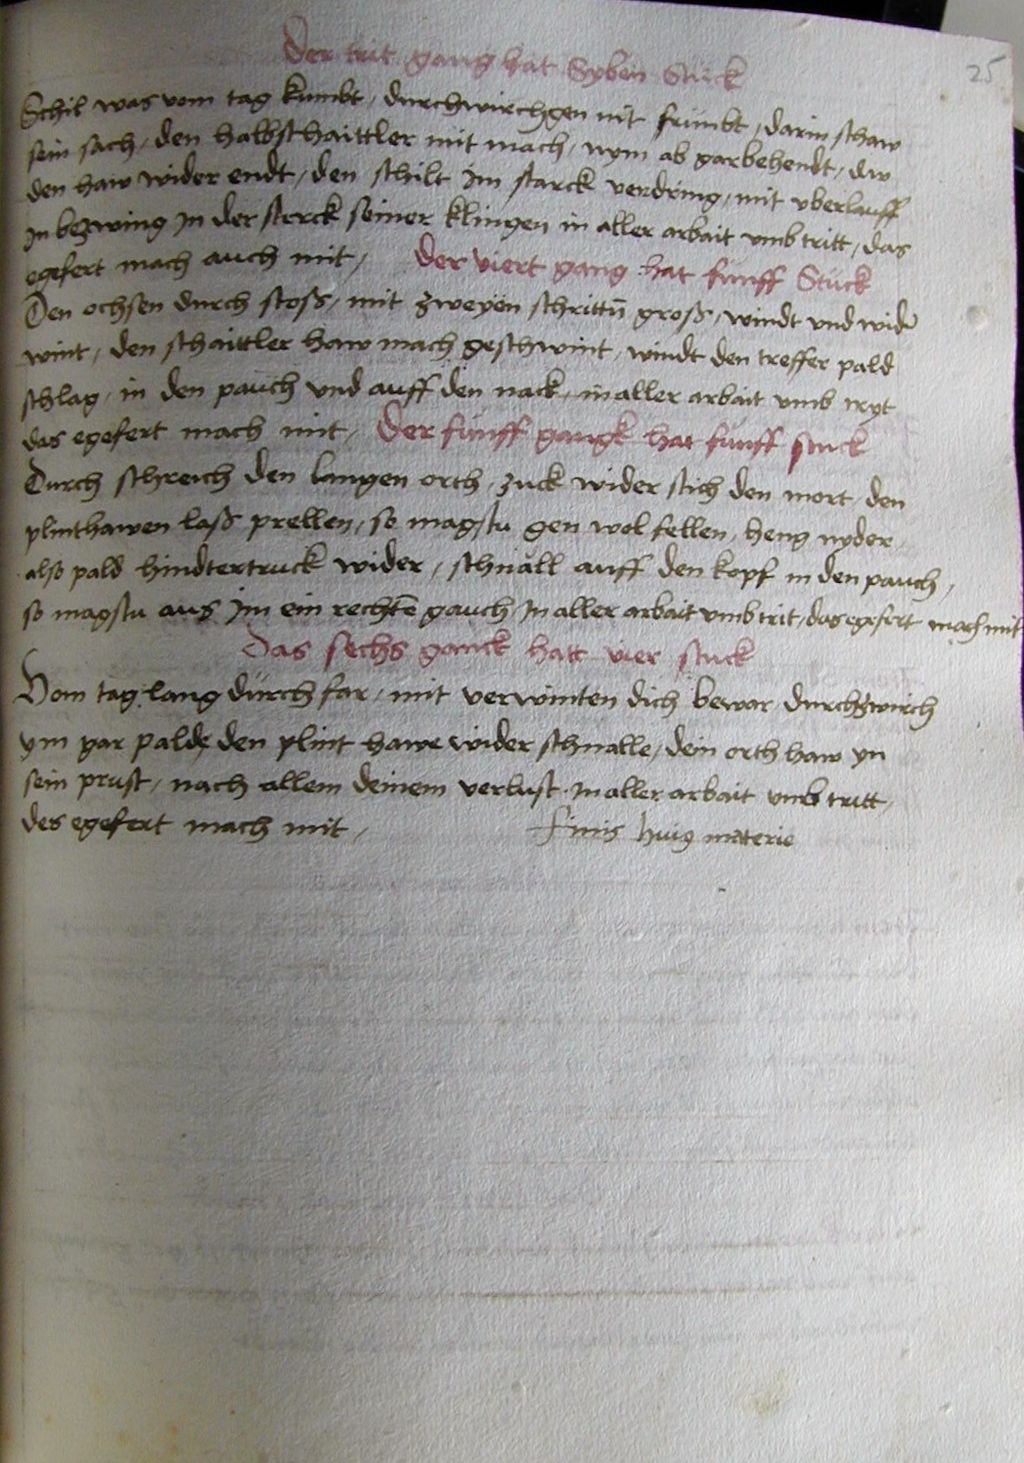 25
Der trit gang hat Syben Stück
Schil was vom tag kumbt, durchwirchgen nit frümbt, darin schaw
sein sach, den halbschaittler mit mach, nym ab gar behendt, dw
den haw wider endt, den schilt Im starck verdring, mit vberlauff
In bezwing In der sterck seiner klingen in aller arbait vmb tritt, das
egefert mach auch mit, Der viert gang hat funff Stuck
Den ochsen durch stoss, mit zweyen schrittñ gross, windt vnd wider
wint, den schaittler haw mach geschwint, windt den treffer pald
schlag, in den pauch vnd auff den nack, in aller arbait vmb tryt
das egefert mach mit, Der funff gangk hat funff stuck
Durch schreich den langen orth, zuck wider stich den mort, den
plinthawen lass prellen, so magstu gen wol fellen, heng nyder,
also pald hindtertruck wider, schnall auff den kopf in den pauch,
so magstu aus Im ein rechtē gauch, In aller arbait vmb trit, das egefert mach mit
Das sechs ganck hatt vier stuck
Vom tag lang durch far, mit verwinten dich bewar durchzwirch
ym gar palde, den plint hawe wider schnalle, dein orth haw yn
sein prust, nach allem deinem verlust. In aller arbait vmb tritt,
des egefert mach mit, Finis huiꝯ materie